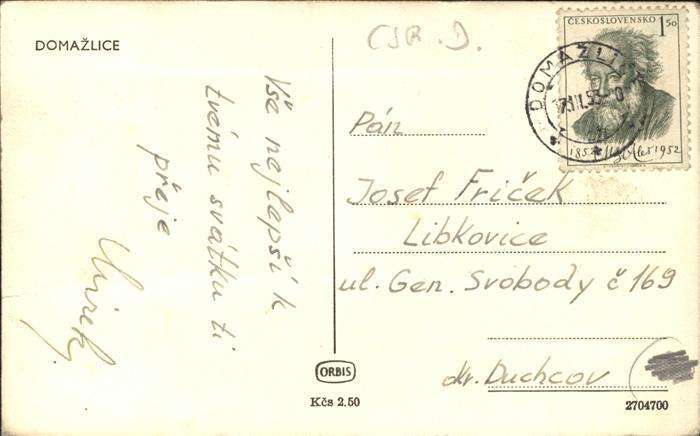 DOMAŽLICE
ČSR. D.
ČESKOSLOVENSKO 1 50
DOMAŽLICE
1852 M. Aleš 1952
Vše nejlepší k
tvému svátku ti
přeje
Mirek
Pán
Josef Friček
Libkovice
ul. Gen. Svobody č 169
okr. Duchcov
ORBIS
Kčs 2.50
2704700